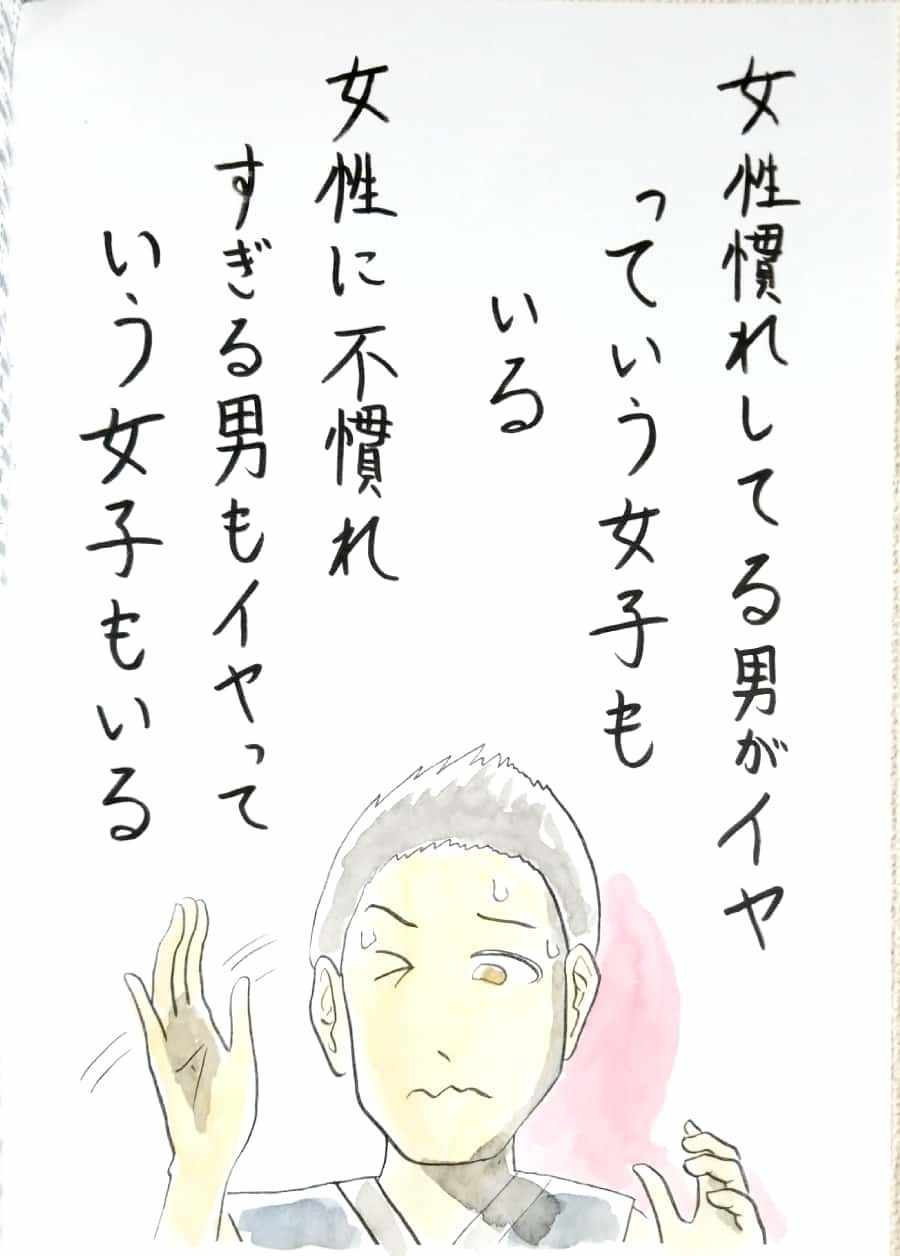 女性慣れしてる男がイヤ
っていう女子も
いる
女性に不慣れ
すぎる男もイヤって
いう女子もいる